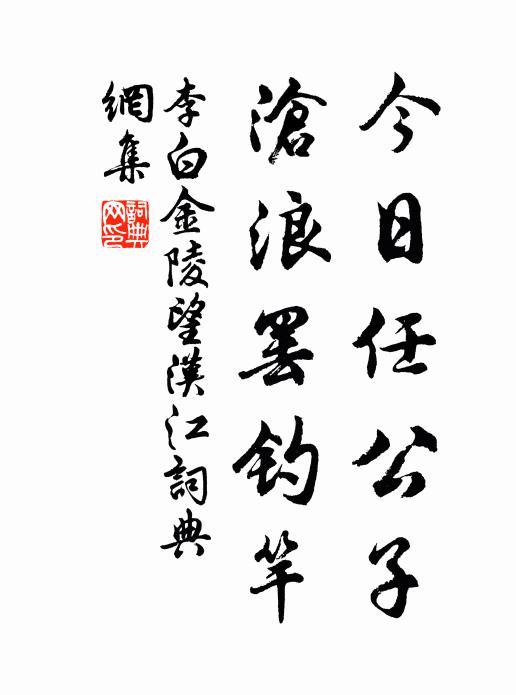 今日任公子
滄浪罷釣竿
李白金陵望漢江詞典
網集
詞典
网印